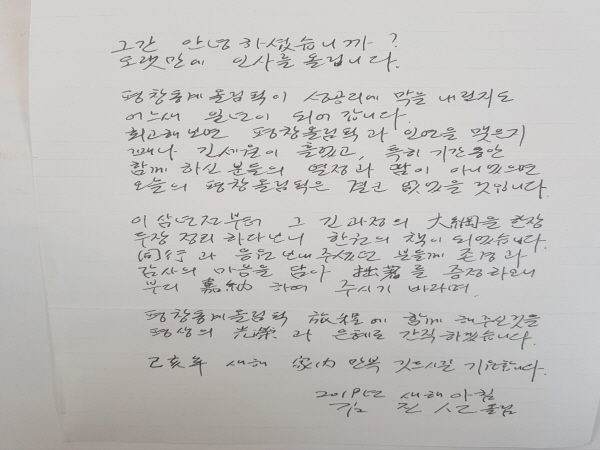 그간 안녕하셨습니까?
오랫만에 인사를 올립니다.
평창동계올림픽이 성공리에 막을 내린지도
어느새 일년이 되어 갑니다.
회고해보면 평창올림픽과 인연을 맺은지
꽤나 긴세월이 흘렀고, 특히 기간동안
함께 하신 분들의 열정과 땀이 아니었으면
오늘의 평창올림픽은 결코 없었을 것입니다.
이삼년전부터 그 긴과정의 大綱을 한장
두장 정리하다보니 한권의 책이 되었습니다.
同行과 응원 보내주셨던 분들께 존경과
감사의 마음을 담아 拙著를 증정하오니
부디 嘉納하여 주시기 바라며,
평창동계올림픽 旅程에 함께 해주신것을
평생의 光榮과 은혜로 간직하겠습니다.
己亥年 새해 家內 만복 깃드시길 기원합니다.
2019년 새해아침
김진선 올림